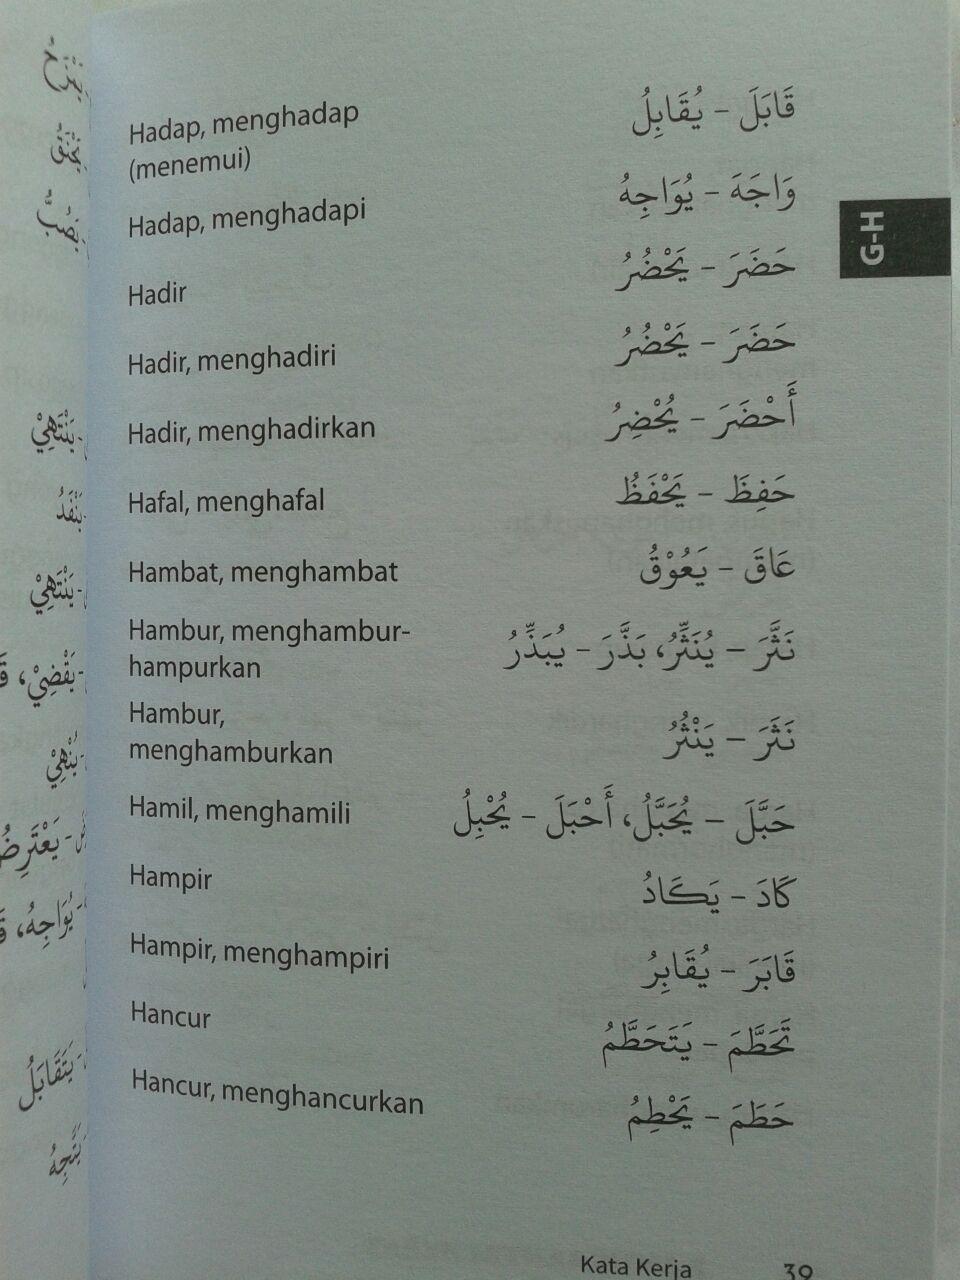 Hadap, menghadap قَابَلَ – يُقَابِلُ
(menemui)
Hadap, menghadapi وَاجَهَ – يُوَاجِهُ
G-H
Hadir حَضَرَ – يَحْضُرُ
Hadir, menghadiri حَضَرَ – يَحْضُرُ
Hadir, menghadirkan أَحْضَرَ – يُحْضِرُ
Hafal, menghafal حَفِظَ – يَحْفَظُ
Hambat, menghambat عَاقَ – يَعُوْقُ
Hambur, menghambur- نَثَّرَ – يُنَثِّرُ، بَذَّرَ – يُبَذِّرُ
hampurkan
Hambur, نَثَرَ – يَنْثُرُ
menghamburkan
Hamil, menghamili حَبَّلَ – يُحَبَّلُ، أَحْبَلَ – يُحْبِلُ
Hampir كَادَ – يَكَادُ
Hampir, menghampiri قَابَرَ – يُقَابِرُ
Hancur تَحَطَّمَ – يَتَحَطَّمُ
Hancur, menghancurkan حَطَمَ – يَحْطِمُ
Kata Kerja 39
يَنْتَهِيْ
يَنْفَدُ
يَنْتَهِيْ
يَقْضِيْ،
يُنْهِيْ
يُوَاجِهُ،
يَتَقَابَلُ